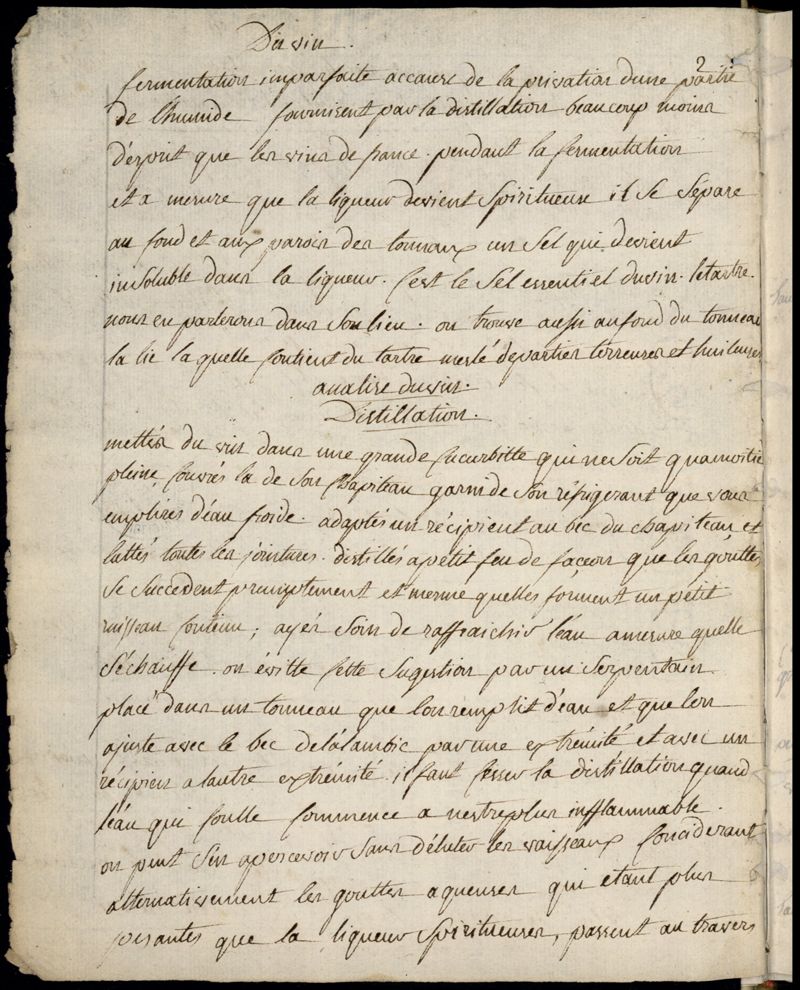 Du vin.
2
fermentation imparfaite accause de la privation dune partie
de l'humide fournisent par la distillation beaucoup moins
d'esprit que les vins de france. pendant la fermentation
et a mesure que la liqueur devient spiritueuse il se separe
au fond et aux parois des tonnaux un sel qui devient
insoluble dans la liqueur. C'est le sel essentiel du vin. le tartre.
nous en parlerons dans son lieu. on trouve aussi au fond du tonneau
la lie la quelle contient du tartre meslé de parties terreuses et huileuses
analise du vin.
Distillation.
mettés du vin dans une grande cucurbitte qui ne soit qua moitié
pleine, couvrés la de son chapiteau garni de son réfrigerant que vous
emplirés d'éau froide. adaptés un récipient au bec du chapiteau et
luttés toutes les jointures. distillés a pétit feu de faceon que les goúttes
se succedent promptement et mesme quelles fórment un pétit
ruisseau continu; ayés soin de raffraichir l'éau a mesure quelle
s'échauffe. on évitte cette sugestion par un serpentain
placé dans un tonneau que l'on remplit d'eau et que l'on
ajuste avec le bec de lalambic par une extrémité et avec un
récipien a lautre extrémité. il faut cesser la distillation quand
l'éau qui coulle commence a nestre plus infflammable.
on peut s'en apercevoir sans déluter les vaisseaux consciderant
alternativement les gouttes aqueuses qui étant plus
pesantes que la liqueur spiritueuses, passent au travers